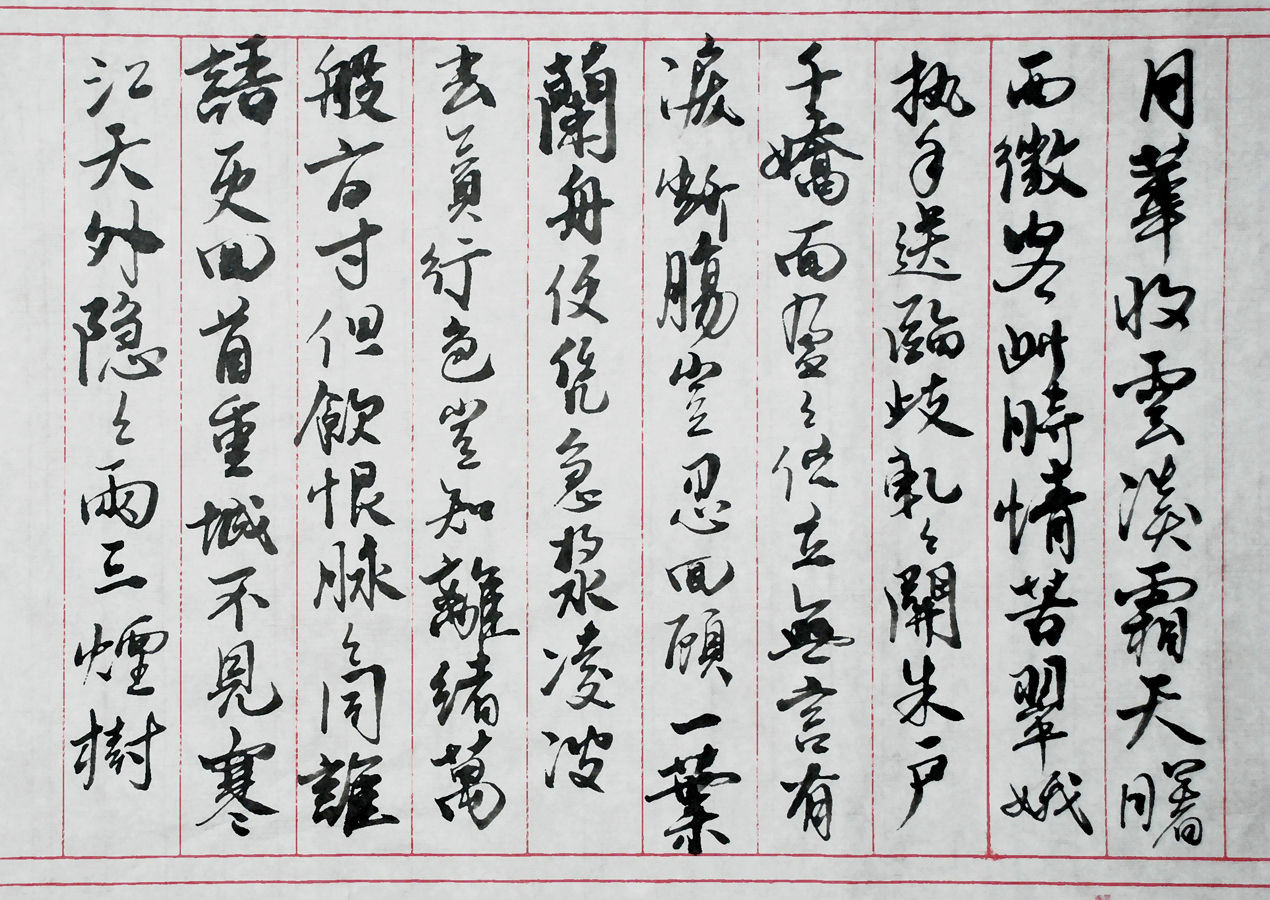 月華收雲淡霜天曙
西徵客此時情苦翠娥
執手送臨歧軋々開朱戶
千嬌面盈々佇立無言有
淚斷腸豈忍回顧一葉
蘭舟便凭急槳凌波
去貪行色豈知離緒萬
般方寸但飲恨脉々同誰
語更回首重城不見寒
江天外隐々兩三煙樹